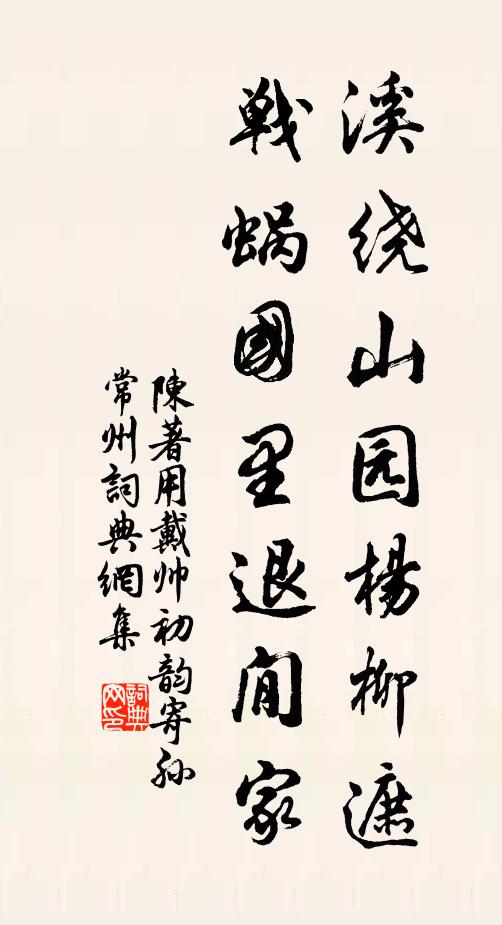 溪绕山园杨柳遮
戦蜗國里退闲家
陳著用戴帅初韵寄孙
常州詞典網集
詞典网印